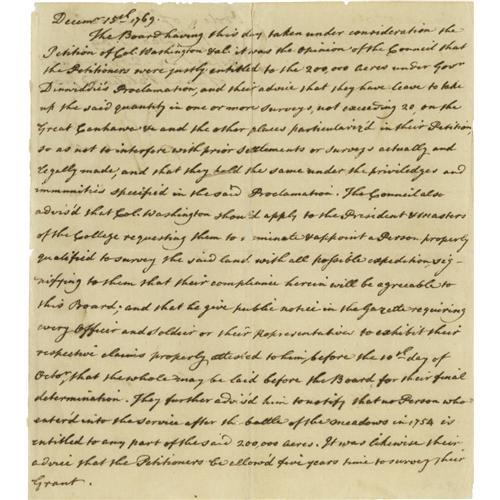 Decemr. 15th. 1769.
The Board having this day taken under consideration the
Petition of Col. Washington &al. it was the Opinion of the Council that
the Petitioners were justly entitled to the 200,000 acres under Govr
Dinwiddie's Proclamation, and their advice that they have leave to take
up the said quantity in one or more surveys, not exceeding 20, on the
Great Canhawa &c and the other places particulariz'd in their Petition,
so as not to interfere with prior settlements or surveys actually and
legally made, and that they hold the same under the priviledges and
immunities specified in the said Proclamation. The Council also
advis'd that Col. Washington shou'd apply to the President & Masters
of the College requesting them to minate & appoint a Person properly
qualified to survey the said land with all possible expedition, sig-
nifying to them that their compliance herein will be agreeable to
this Board; and that he give public notice in the Gazette requiring
every Officer and Soldier or their Representatives to exhibit their
respective claims properly attested to him, before the 10th. day of
Octor, that the whole may be laid before the Board for their final
determination. They further advis'd him to notify that no Person who
enter'd into the Service after the battle of the Meadows in 1754 is
entitled to any part of the said 200,000 acres. It was likewise their
advice that the Petitioners be allow'd five years time to survey their
Grant.